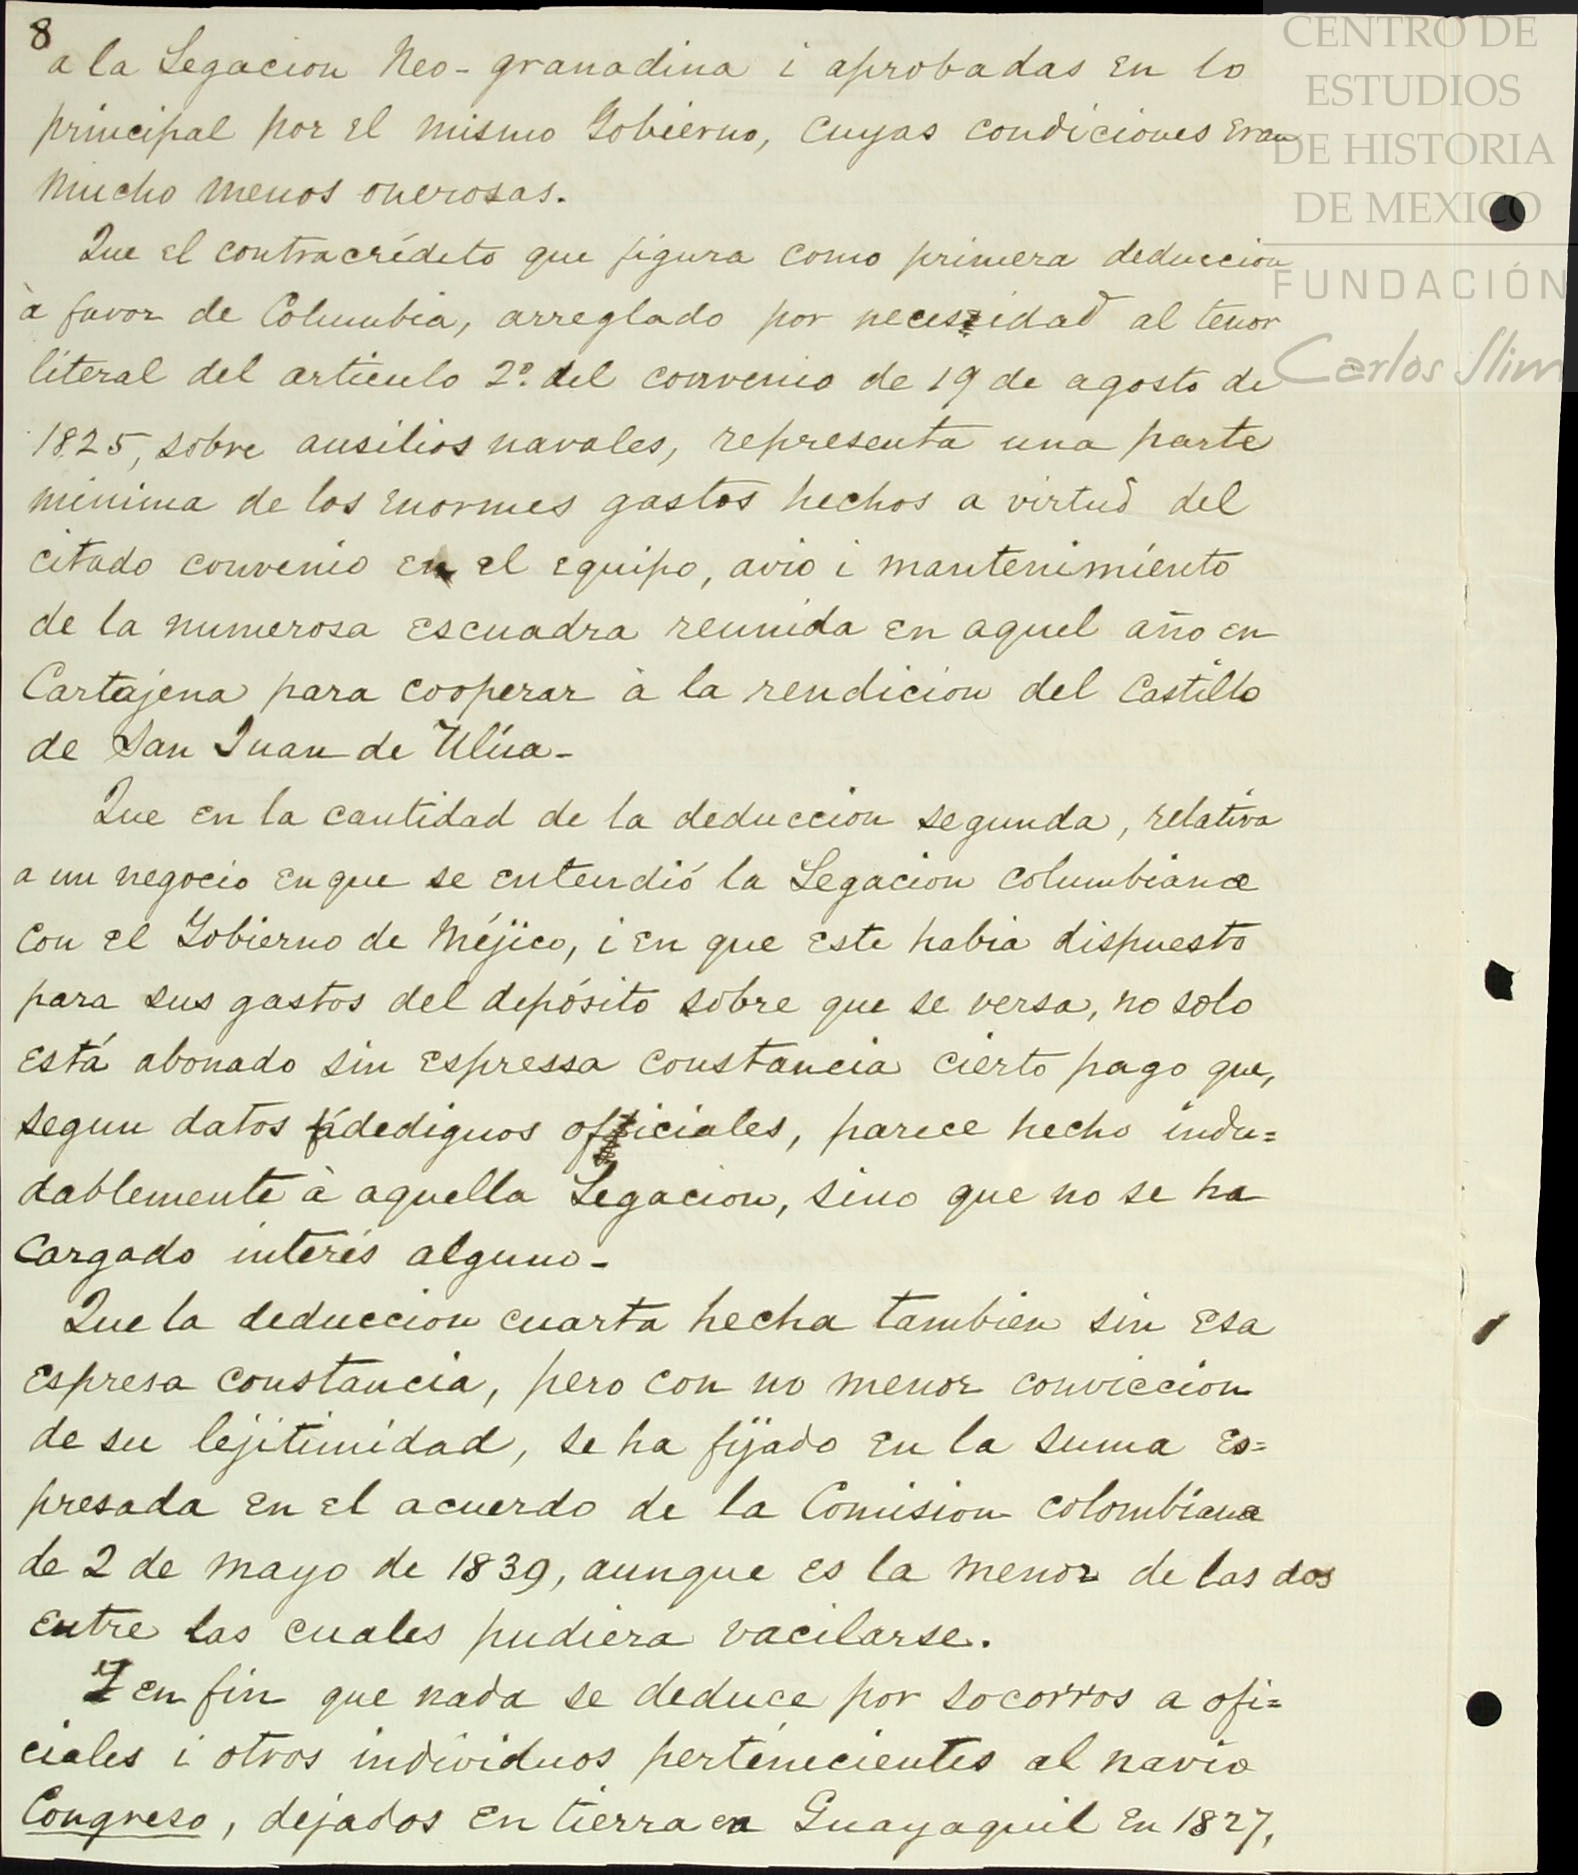 8
a la Legacion Neo-granadina i aprobadas en lo
principal por el mismo Gobierno, cuyas condiciones eran
mucho menos onerosas.
Que el contracrédito que figura como primera deduccion
à favor de Columbia, arreglado por necesidad al tenor
literal del articulo 2º del convenio de 19 de agosto de
1825, sobre ausilios navales, representa una parte
minima de los enormes gastos hechos a virtud del
citado convenio en el equipo, avio i mantenimiento
de la numerosa escuadra reunida en aquel año en
Cartajena para cooperar à la rendicion del Castillo
de San Juan de Ulúa-
Que en la cantidad de la deduccion segunda, relativa
a un negocio en que se entendió la Legacion columbiana
con el Gobierno de Méjico, i en que este habia dispuesto
para sus gastos del depósito sobre que se versa, no solo
está abonado sin espressa constancia cierto pago que,
segun datos fidedignos oficiales, parece hecho indu=
dablemente à aquella Legacion, sino que no se ha
cargado interés alguno-
Que la deduccion cuarta hecha tambien sin esa
espresa constancia, pero con no menor conviccion
de su lejitimidad, se ha fijado en la suma es=
presada en el acuerdo de la Comision colombiana
de 2 de mayo de 1839, aunque es la menor de las dos
entre las cuales pudiera vacilarse.
I en fin que nada se deduce por socorros a ofi=
ciales i otros individuos pertenecientes al navio
Congreso, dejados en tierra en Guayaquil en 1827,
CENTRO DE
ESTUDIOS
DE HISTORIA
DE MEXICO
FUNDACIÓN
Carlos Slim